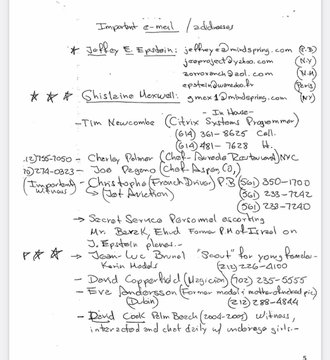 Important e-mail / addresses
* Jeffrey E. Epstein: jeffreye@mindspring.com (P.B)
jeeproject@yahoo.com (N.Y)
zorroranch@aol.com (N.M)
epstein@wanadoo.fr (Paris)
*** Ghislaine Maxwell: gmax1@mindspring.com (NY)
- In House -
- Tim Newcombe (Citrix Systems Programmer)
(614) 361-8625 Cell.
(614) 481-7628 H.
- Cherley Palmer (Chef- Restaurant) NYC
- Joe Pagano (Chef- Aspen, CO,)
(Important witness) - Christophe (French Driver) P.B (561) 350-1700
Jet Aviation (561) 233-7242
(561) 233-7240
→ Secret Service Personnel escorting
Mr. Barak, Ehud Former P.M of Israel on
J. Epstein planes.-
*** - Jean-Luc Brunel "Scout" for young females-
Karin Models (212) 226-4100
- David Copperfield (Magician) (702) 235-5555
- Eva Andersson (Former model & mother of kid pic)
(Dubin) (212) 288-4844
- David Cook Palm Beach (2004-2005) Witness,
interacted and chat daily w/ underage girls.-
5